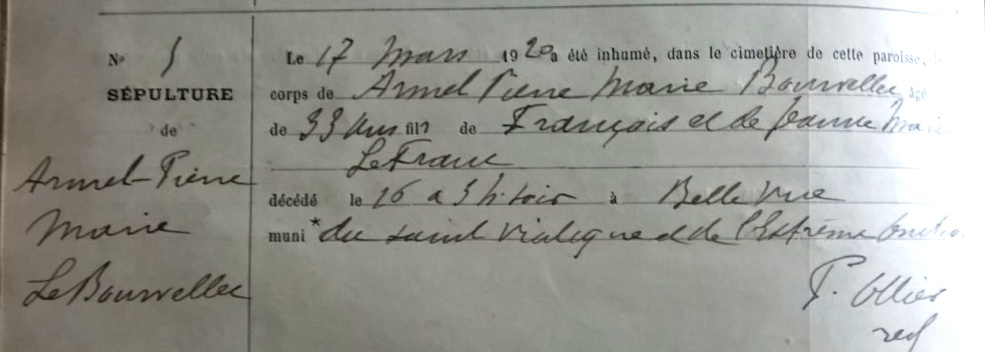 N° 5
SÉPULTURE
de
Armel-Pierre
Marie
Le Bourvellec
Le 17 Mars 1920 a été inhumé, dans le cimetière de cette paroisse, le
corps de Armel Pierre Marie Bourvellec âgé
de 33 Ans fils de François et de Jeanne Marie
Le Franc
décédé le 16 a 5 h. soir à Belle vue
muni * du saint viatique et de l'Extrême onction
P. Ollier